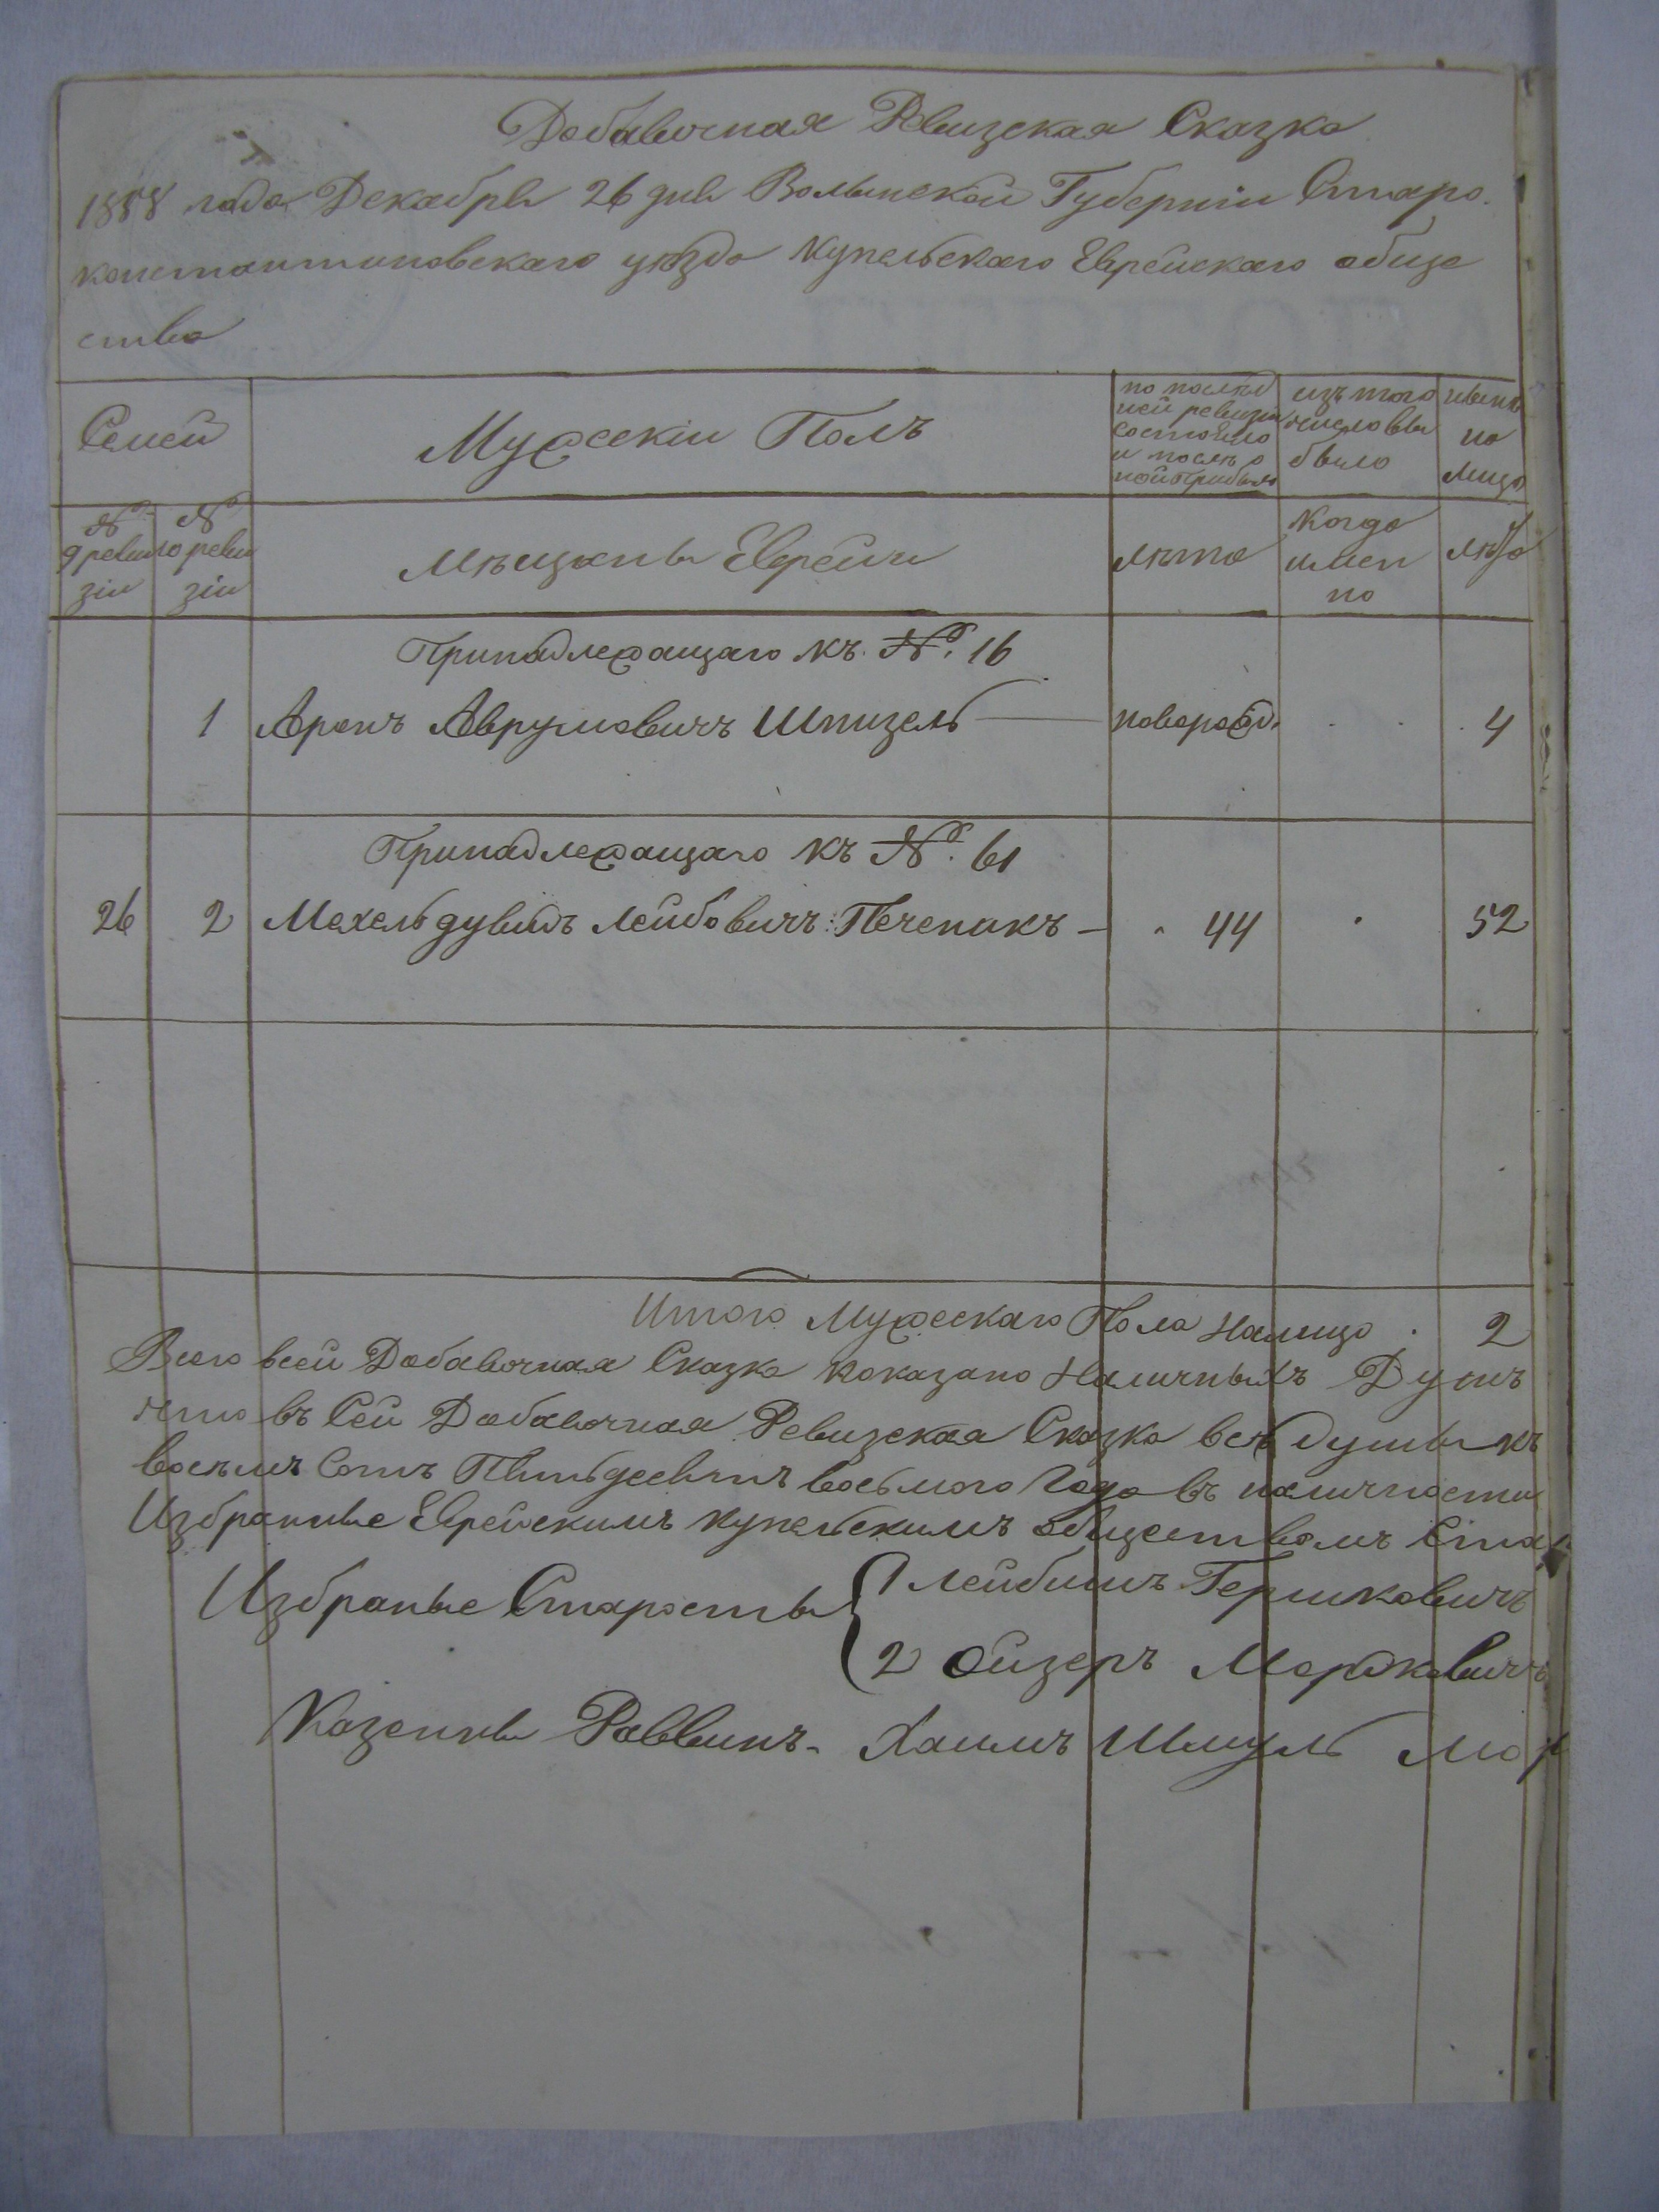 Добавочная Ревизская Сказка
1858 года Декабря 26 дня Волынской Губернии Старо
константиновскаго уѣзда Купельскаго Еврейскаго обще
ства
Семей
Мужескiй Полъ
по послѣд
ней ревизіи
состояло
и послѣ о
ной прибыло
изъ того
числа вы
было
нынѣ
на
лицо
№
9 реви
зіи
№
10 реви
зіи
Мѣщаны Евреи
лѣта
Когда
имен
но
лѣта
Принадлежащаго къ № 16
1 Аронъ Аврумовичъ Шпизель новорожд. 4
Принадлежащаго къ №. 61
26 2 Мехель дувидъ Лейбовичъ Печеникъ 44 52
Итого Мужескаго Пола Налицо 2
Всего всей Добавочная Сказка показано Наличныхъ Душъ
что въ Сей Добавочная Ревизская Сказка всѣ души къ
восемъ Сотъ Пятьдесятъ восьмого Года въ наличности
Избранные Еврейскимъ купельскимъ обществомъ Ста
Избраные Старосты 1 Лейбишъ Гершковичъ
2 Ойзеръ Мордковичъ
Казенны Раввинъ Хаимъ Шмуль Мор